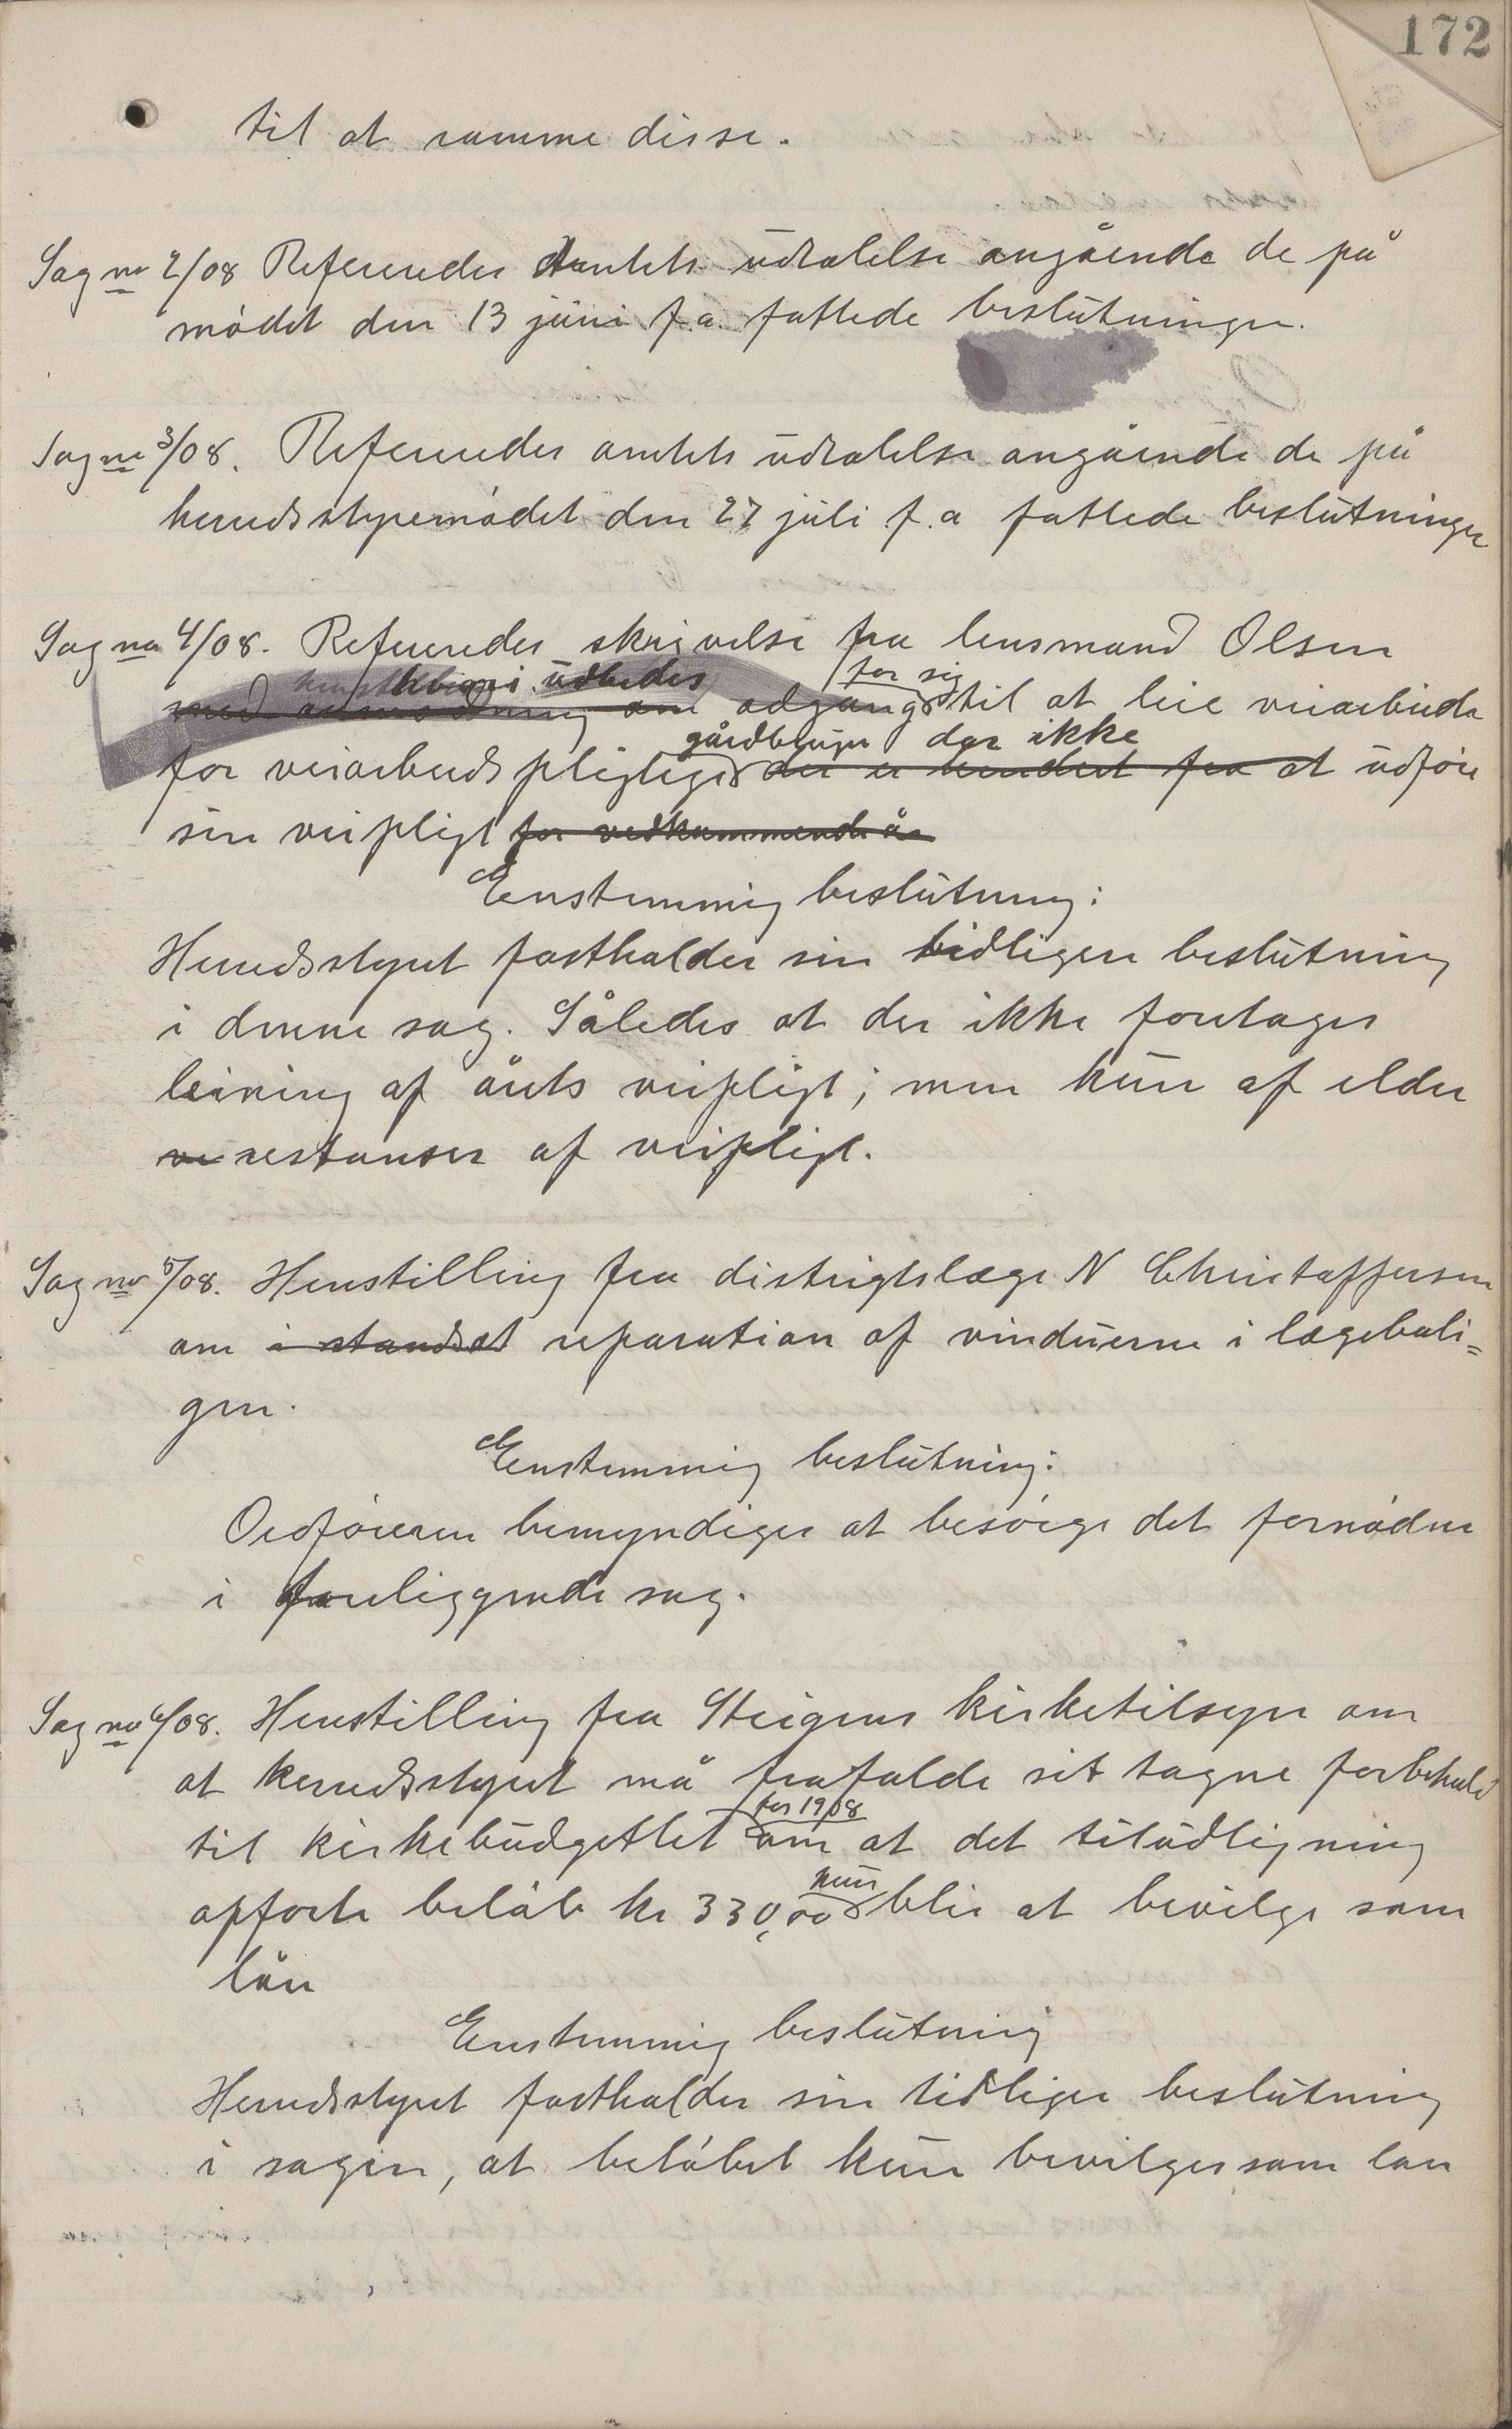 172
til at ramme disse.
Sag no 2/08 Refereredes Amtets udtalelse angående de på
mødet den 13 juni f.a. fattede beslutninger.
Sag no 3/08. Refereredes amtets udtalelse angående de på
herredsstyremødet den 27 juli f.a fattede beslutninger
Sag no 4/08. Refereredes skrivelse fra lensmand Olsen
hvori udbedes for sig
med anmodning om adgang til at leie veiarbeide
gårdbruger der ikke
for veiarbeidspligtige der er hindret fra at udføre
sin veipligt for vedkommende år
Enstemmig beslutning:
Herredsstyret fastholder sin tidligere beslutning
i denne sag. Således at der ikke foretages
leining af årets veipligt; men kun af eldre
ve restanser af veipligt.
Sag no 5/08. Henstilling fra distrigtslæge N Christoffersen
om i standsat reparation af vinduerne i lægeboli=
gen.
Enstemmig beslutning:
Ordføreren bemyndiges at besørge det fornødne
i foreliggende sag.
Sag no 6/08. Henstilling fra Steigens kirketilsyn om
at herredsstyret må frafalde sit tagne forbehold
for 1908
til kirkebudgettet om at det tiludligning
kun
opførte beløb kr 330,00 blir at bevilge som
lån
Enstemmig beslutning
Herredsstyret fastholder sin tidligere beslutning
i sagen, at beløbet kun bevilges som lån